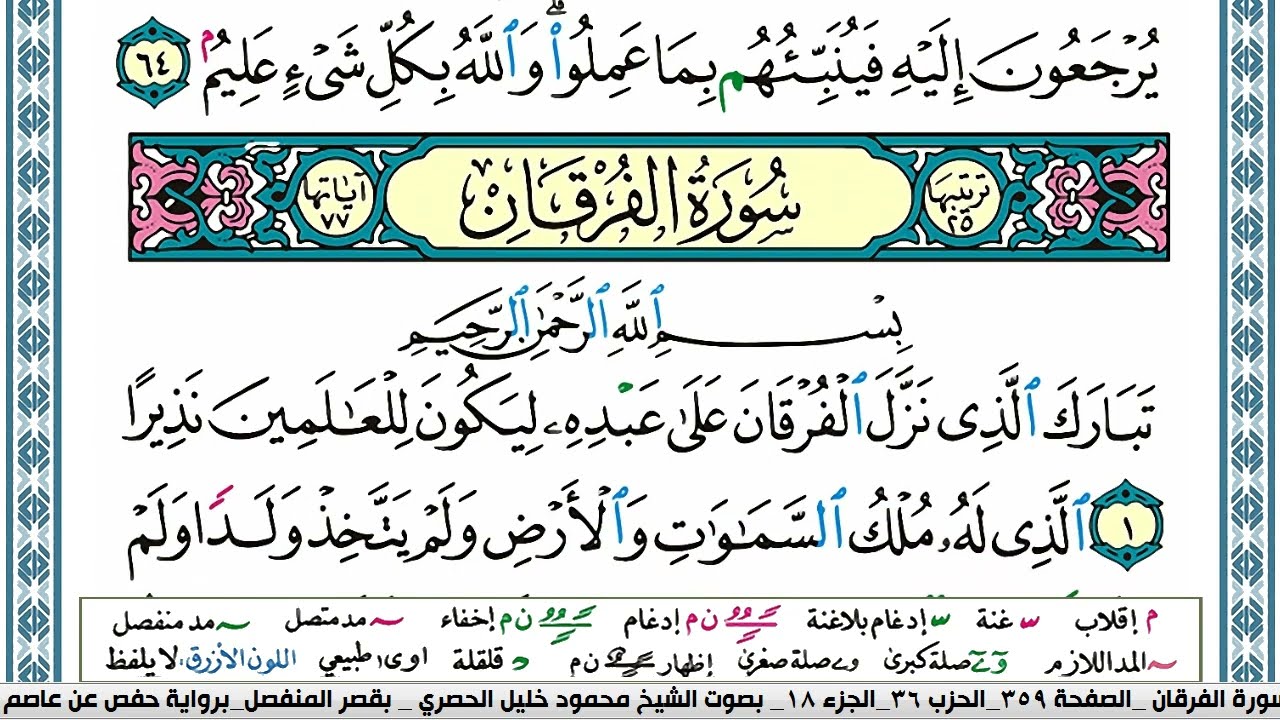 يُرْجَعُونَ إِلَيْهِ فَيُنَبِّئُهُم بِمَا عَمِلُوا۟ ۗ وَٱللَّهُ بِكُلِّ شَىْءٍ عَلِيمُۢ ٦٤
ترتيبها ٢٥ سُورَةُ الفُرْقَانِ آياتها ٧٧
بِسْمِ ٱللَّهِ ٱلرَّحْمَٰنِ ٱلرَّحِيمِ
تَبَارَكَ ٱلَّذِى نَزَّلَ ٱلْفُرْقَانَ عَلَىٰ عَبْدِهِۦ لِيَكُونَ لِلْعَٰلَمِينَ نَذِيرًا
١ ٱلَّذِى لَهُۥ مُلْكُ ٱلسَّمَٰوَٰتِ وَٱلْأَرْضِ وَلَمْ يَتَّخِذْ وَلَدًا وَلَمْ
م إقلاب س غنة س إدغام بلاغنة ن م إدغام ن م إخفاء ~ مد متصل ~ مد منفصل
~ المد اللازم صلة كبرى صلة صغرى ن م إظهار د قلقلة اوى طبيعي اللون الأزرق: لا يلفظ
سورة الفرقان _الصفحة ٣٥٩_الحزب ٣٦_الجزء ١٨_ بصوت الشيخ محمود خليل الحصري _ بقصر المنفصل_برواية حفص عن عاصم